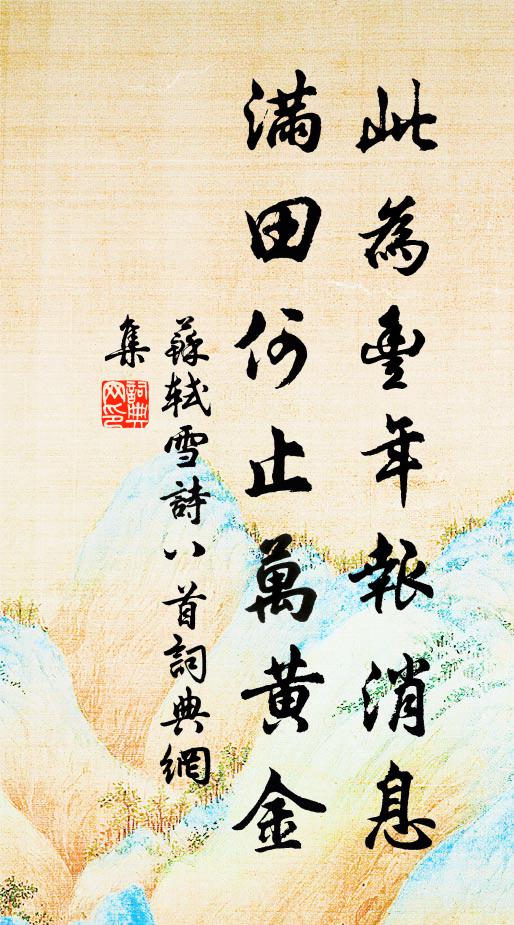 此為豐年報消息
滿田何止萬黃金
蘇軾雪詩八首詞典網
集
詞典
网印